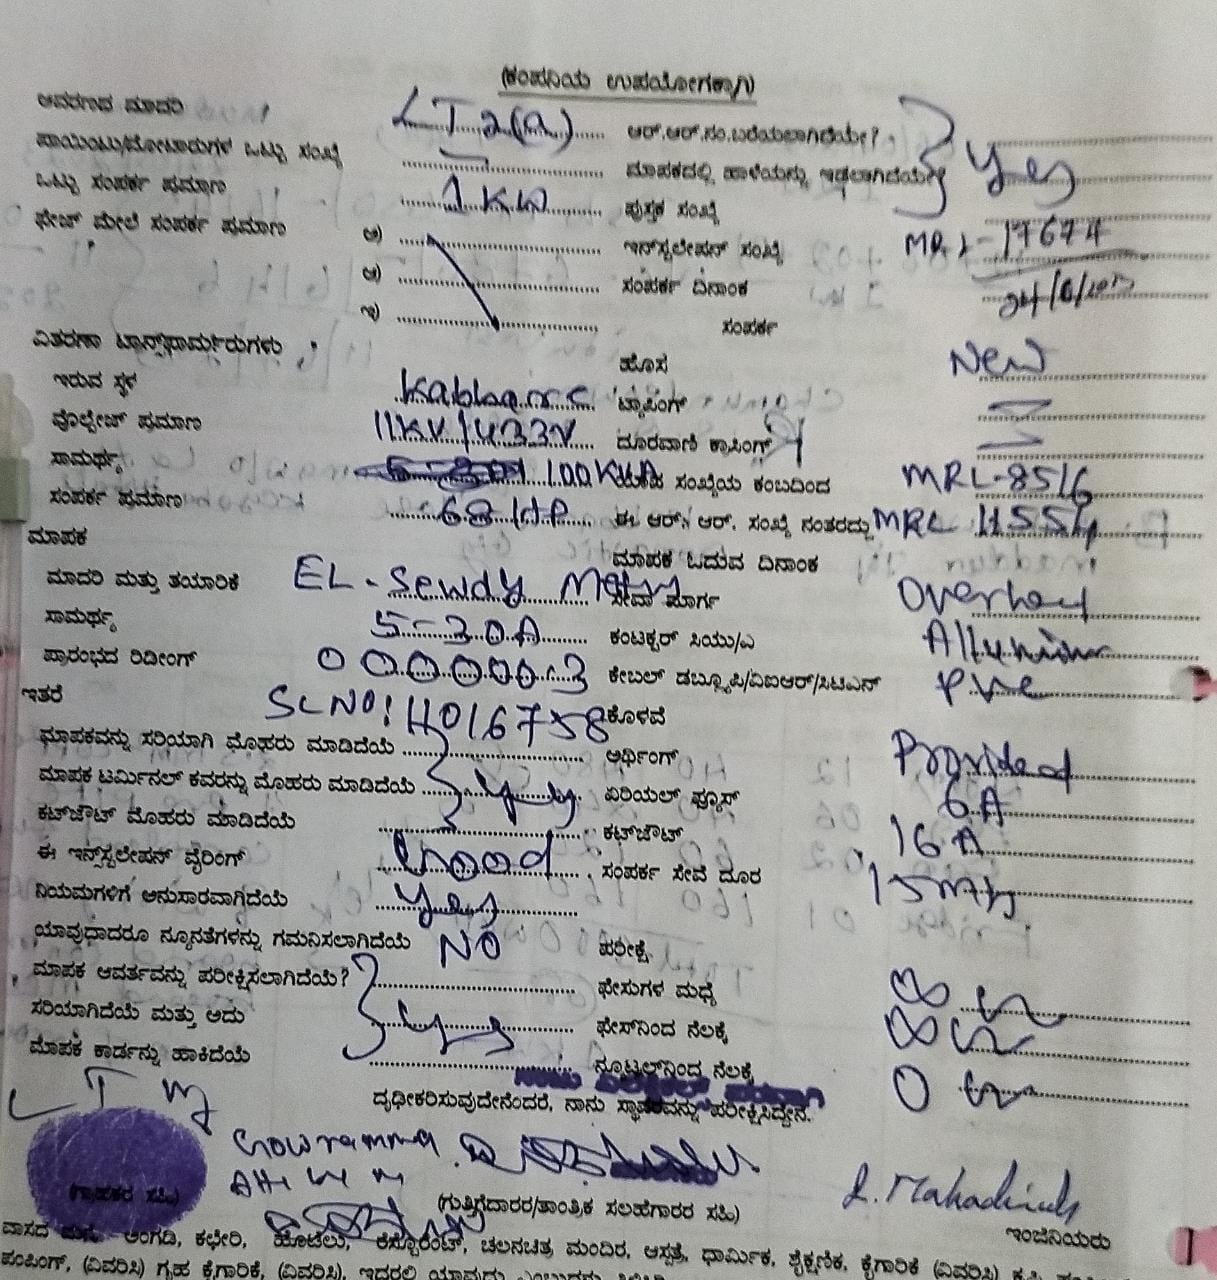 (ಕಂಪನಿಯ ಉಪಯೋಗಕ್ಕಾಗಿ)
ಆವರಣದ ಮಾದರಿ LT 2(a) ಆರ್.ಆರ್.ನಂ.ಬರೆಯಲಾಗಿದೆಯೇ?
ಪಾಯಿಂಟು/ಮೋಟಾರುಗಳ ಒಟ್ಟು ಸಂಖ್ಯೆ - ಮಾಪಕದಲ್ಲಿ ಹಾಳೆಯನ್ನು ಇಡಲಾಗಿದೆಯೇ? } Yes
ಒಟ್ಟು ಸಂಪರ್ಕ ಪ್ರಮಾಣ 1 KW ಪುಸ್ತಕ ಸಂಖ್ಯೆ
ಫೇಜ್ ಮೇಲೆ ಸಂಪರ್ಕ ಪ್ರಮಾಣ ಅ) ಇನ್‌ಸ್ಟಲೇಷನ್ ಸಂಖ್ಯೆ MRL-17674
ಆ) ಸಂಪರ್ಕ ದಿನಾಂಕ
ಇ) ಸಂಪರ್ಕ
ವಿತರಣಾ ಟ್ರಾನ್ಸ್‌ಫಾರ್ಮರುಗಳು ಹೊಸ New
ಇರುವ ಸ್ಥಳ Kabbare ಟ್ಯಾಪಿಂಗ್
ವೊಲ್ಟೇಜ್ ಪ್ರಮಾಣ 11KV/433V ದೂರವಾಣಿ ಕ್ರಾಸಿಂಗ್
ಸಾಮರ್ಥ್ಯ 100 KVA ಸಂಖ್ಯೆಯ ಕಂಬದಿಂದ MRL-8516
ಸಂಪರ್ಕ ಪ್ರಮಾಣ 68 HP ಈ ಆರ್. ಆರ್. ಸಂಖ್ಯೆ ನಂತರದ್ದು MRL 11554
ಮಾಪಕ ಮಾಪಕ ಓದುವ ದಿನಾಂಕ
ಮಾದರಿ ಮತ್ತು ತಯಾರಿಕೆ EL-Sewdy ಸೇವಾ ಮಾರ್ಗ Overhead
ಸಾಮರ್ಥ್ಯ 5-30A ಕಂಟಕ್ಟರ್ ಸಿಯು/ಎ
ಪ್ರಾರಂಭದ ರಿಡೀಂಗ್ 000000.3 ಕೇಬಲ್ ಡಬ್ಲ್ಯೂಪಿ/ವಿಐಆರ್/ಸಿಟಿಎಸ್ PVC
ಇತರೆ SLNO: 11016758 ಕೊಳವೆ
ಮಾಪಕವನ್ನು ಸರಿಯಾಗಿ ಮೊಹರು ಮಾಡಿದೆಯೆ ಅರ್ಥಿಂಗ್ Provided
ಮಾಪಕ ಟರ್ಮಿನಲ್ ಕವರನ್ನು ಮೊಹರು ಮಾಡಿದೆಯೆ } Yes ಏರಿಯಲ್ ಫ್ಯೂಸ್ 6A
ಕಟ್‌ಜೌಟ್ ಮೊಹರು ಮಾಡಿದೆಯೆ ಕಟ್‌ಜೌಟ್ 16A
ಈ ಇನ್‌ಸ್ಟಲೇಷನ್ ವೈರಿಂಗ್ Good ಸಂಪರ್ಕ ಸೇವೆ ದೂರ 15 mts
ನಿಯಮಗಳಿಗೆ ಅನುಸಾರವಾಗಿದೆಯೆ Yes
ಯಾವುದಾದರೂ ನ್ಯೂನತೆಗಳನ್ನು ಗಮನಿಸಲಾಗಿದೆಯೆ NO ಪರೀಕ್ಷೆ
ಮಾಪಕ ಆವರ್ತವನ್ನು ಪರೀಕ್ಷಿಸಲಾಗಿದೆಯೆ? ಫೇಸುಗಳ ಮಧ್ಯೆ
ಸರಿಯಾಗಿದೆಯೆ ಮತ್ತು ಅದು } Yes ಫೇಸ್‌ನಿಂದ ನೆಲಕ್ಕೆ
ಮಾಪಕ ಕಾರ್ಡನ್ನು ಹಾಕಿದೆಯೆ ನ್ಯೂಟ್ರಲ್‌ನಿಂದ ನೆಲಕ್ಕೆ
ದೃಢೀಕರಿಸುವುದೇನೆಂದರೆ, ನಾನು ಸ್ಥಾವರವನ್ನು ಪರೀಕ್ಷಿಸಿದ್ದೇನೆ.
LT M
Gowramma
(ಗ್ರಾಹಕರ ಸಹಿ) (ಗುತ್ತಿಗೆದಾರರ/ತಾಂತ್ರಿಕ ಸಲಹೆಗಾರರ ಸಹಿ)
ಇಂಜಿನಿಯರು
ವಾಸದ ಮನೆ, ಅಂಗಡಿ, ಕಛೇರಿ, ಹೋಟೆಲು, ರೆಸ್ಟೋರೆಂಟ್, ಚಲನಚಿತ್ರ ಮಂದಿರ, ಆಸ್ಪತ್ರೆ, ಧಾರ್ಮಿಕ, ಶೈಕ್ಷಣಿಕ, ಕೈಗಾರಿಕೆ (ವಿವರಿಸಿ)
ಪಂಪಿಂಗ್, (ವಿವರಿಸಿ) ಗೃಹ ಕೈಗಾರಿಕೆ, (ವಿವರಿಸಿ),